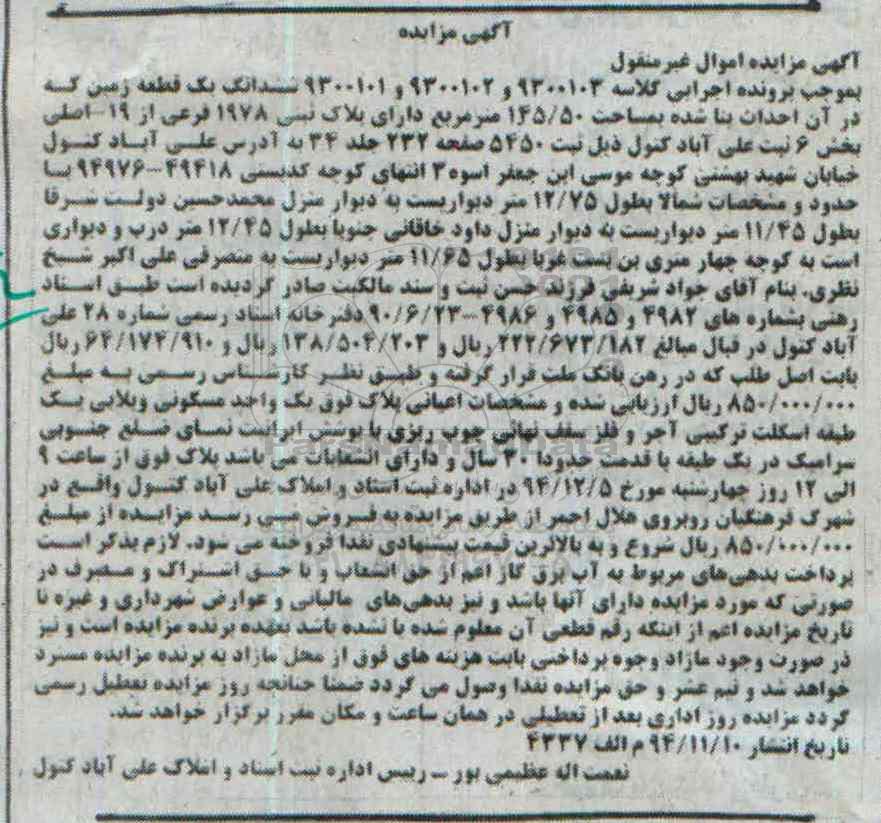 آگهی مزایده
آگهی مزایده اموال غیرمنقول
بموجب پرونده اجرایی کلاسه ۹۳۰۰۱۰۳ و ۹۳۰۰۱۰۲ و ۹۳۰۰۱۰۱ ششدانگ یک قطعه زمین که
در آن احداث بنا شده بمساحت ۱۴۵/۵۰ مترمربع دارای پلاک ثبتی ۱۹۷۸ فرعی از ۱۹-اصلی
بخش ۶ ثبت علی آباد کتول ذیل ثبت ۵۴۵۰ صفحه ۲۳۲ جلد ۳۴ به آدرس علی آباد کتول
خیابان شهید بهشتی کوچه موسی ابن جعفر اسوه۳ انتهای کوچه کدپستی ۴۹۴۱۸-۹۴۹۷۶ با
حدود و مشخصات شمالا بطول ۱۲/۷۵ متر دیواریست به دیوار منزل محمدحسین دولت شرقا
بطول ۱۱/۴۵ متر دیواریست به دیوار منزل داود خاقانی جنوبا بطول ۱۲/۴۵ متر درب و دیواری
است به کوچه چهار متری بن بست غربا بطول ۱۱/۶۵ متر دیواریست به متصرفی علی اکبر شیخ
نظری. بنام آقای جواد شریفی فرزند حسن ثبت و سند مالکیت صادر گردیده است طبق اسناد
رهنی بشماره های ۴۹۸۲ و ۴۹۸۵ و ۴۹۸۶-۹۰/۶/۲۳ دفترخانه اسناد رسمی شماره ۲۸ علی
آباد کتول در قبال مبالغ ۲۲۲/۶۷۳/۱۸۲ ریال و ۱۳۸/۵۰۴/۲۰۳ ریال و ۶۴/۱۷۴/۹۱۰ ریال
بابت اصل طلب که در رهن بانک ملت قرار گرفته و طبق نظر کارشناس رسمی به مبلغ
۸۵۰/۰۰۰/۰۰۰ ریال ارزیابی شده و مشخصات اعیانی پلاک فوق یک واحد مسکونی ویلایی یک
طبقه اسکلت ترکیبی آجر و فلز سقف نهائی چوب ریزی با پوشش ایرانیت نمای ضلع جنوبی
سرامیک در یک طبقه با قدمت حدودا ۳۰ سال و دارای انشعابات می باشد پلاک فوق از ساعت ۹
الی ۱۲ روز چهارشنبه مورخ ۹۴/۱۲/۵ در اداره ثبت اسناد و املاک علی آباد کتول واقع در
شهرک فرهنگیان روبروی هلال احمر از طریق مزایده به فروش می رسد مزایده از مبلغ
۸۵۰/۰۰۰/۰۰۰ ریال شروع و به بالاترین قیمت پیشنهادی نقدا فروخته می شود. لازم بذکر است
پرداخت بدهی‌های مربوط به آب برق گاز اعم از حق انشعاب و یا حق اشتراک و مصرف در
صورتی که مورد مزایده دارای آنها باشد و نیز بدهی‌های مالیاتی و عوارض شهرداری و غیره تا
تاریخ مزایده اعم از اینکه رقم قطعی آن معلوم شده یا نشده باشد بعهده برنده مزایده است و نیز
در صورت وجود مازاد وجوه پرداختی بابت هزینه های فوق از محل مازاد به برنده مزایده مسترد
خواهد شد و نیم عشر و حق مزایده نقدا وصول می گردد ضمنا چنانچه روز مزایده تعطیل رسمی
گردد مزایده روز اداری بعد از تعطیلی در همان ساعت و مکان مقرر برگزار خواهد شد.
تاریخ انتشار ۹۴/۱۱/۱۰ م الف ۴۳۳۷
نعمت اله عظیمی پور - رییس اداره ثبت اسناد و املاک علی آباد کتول